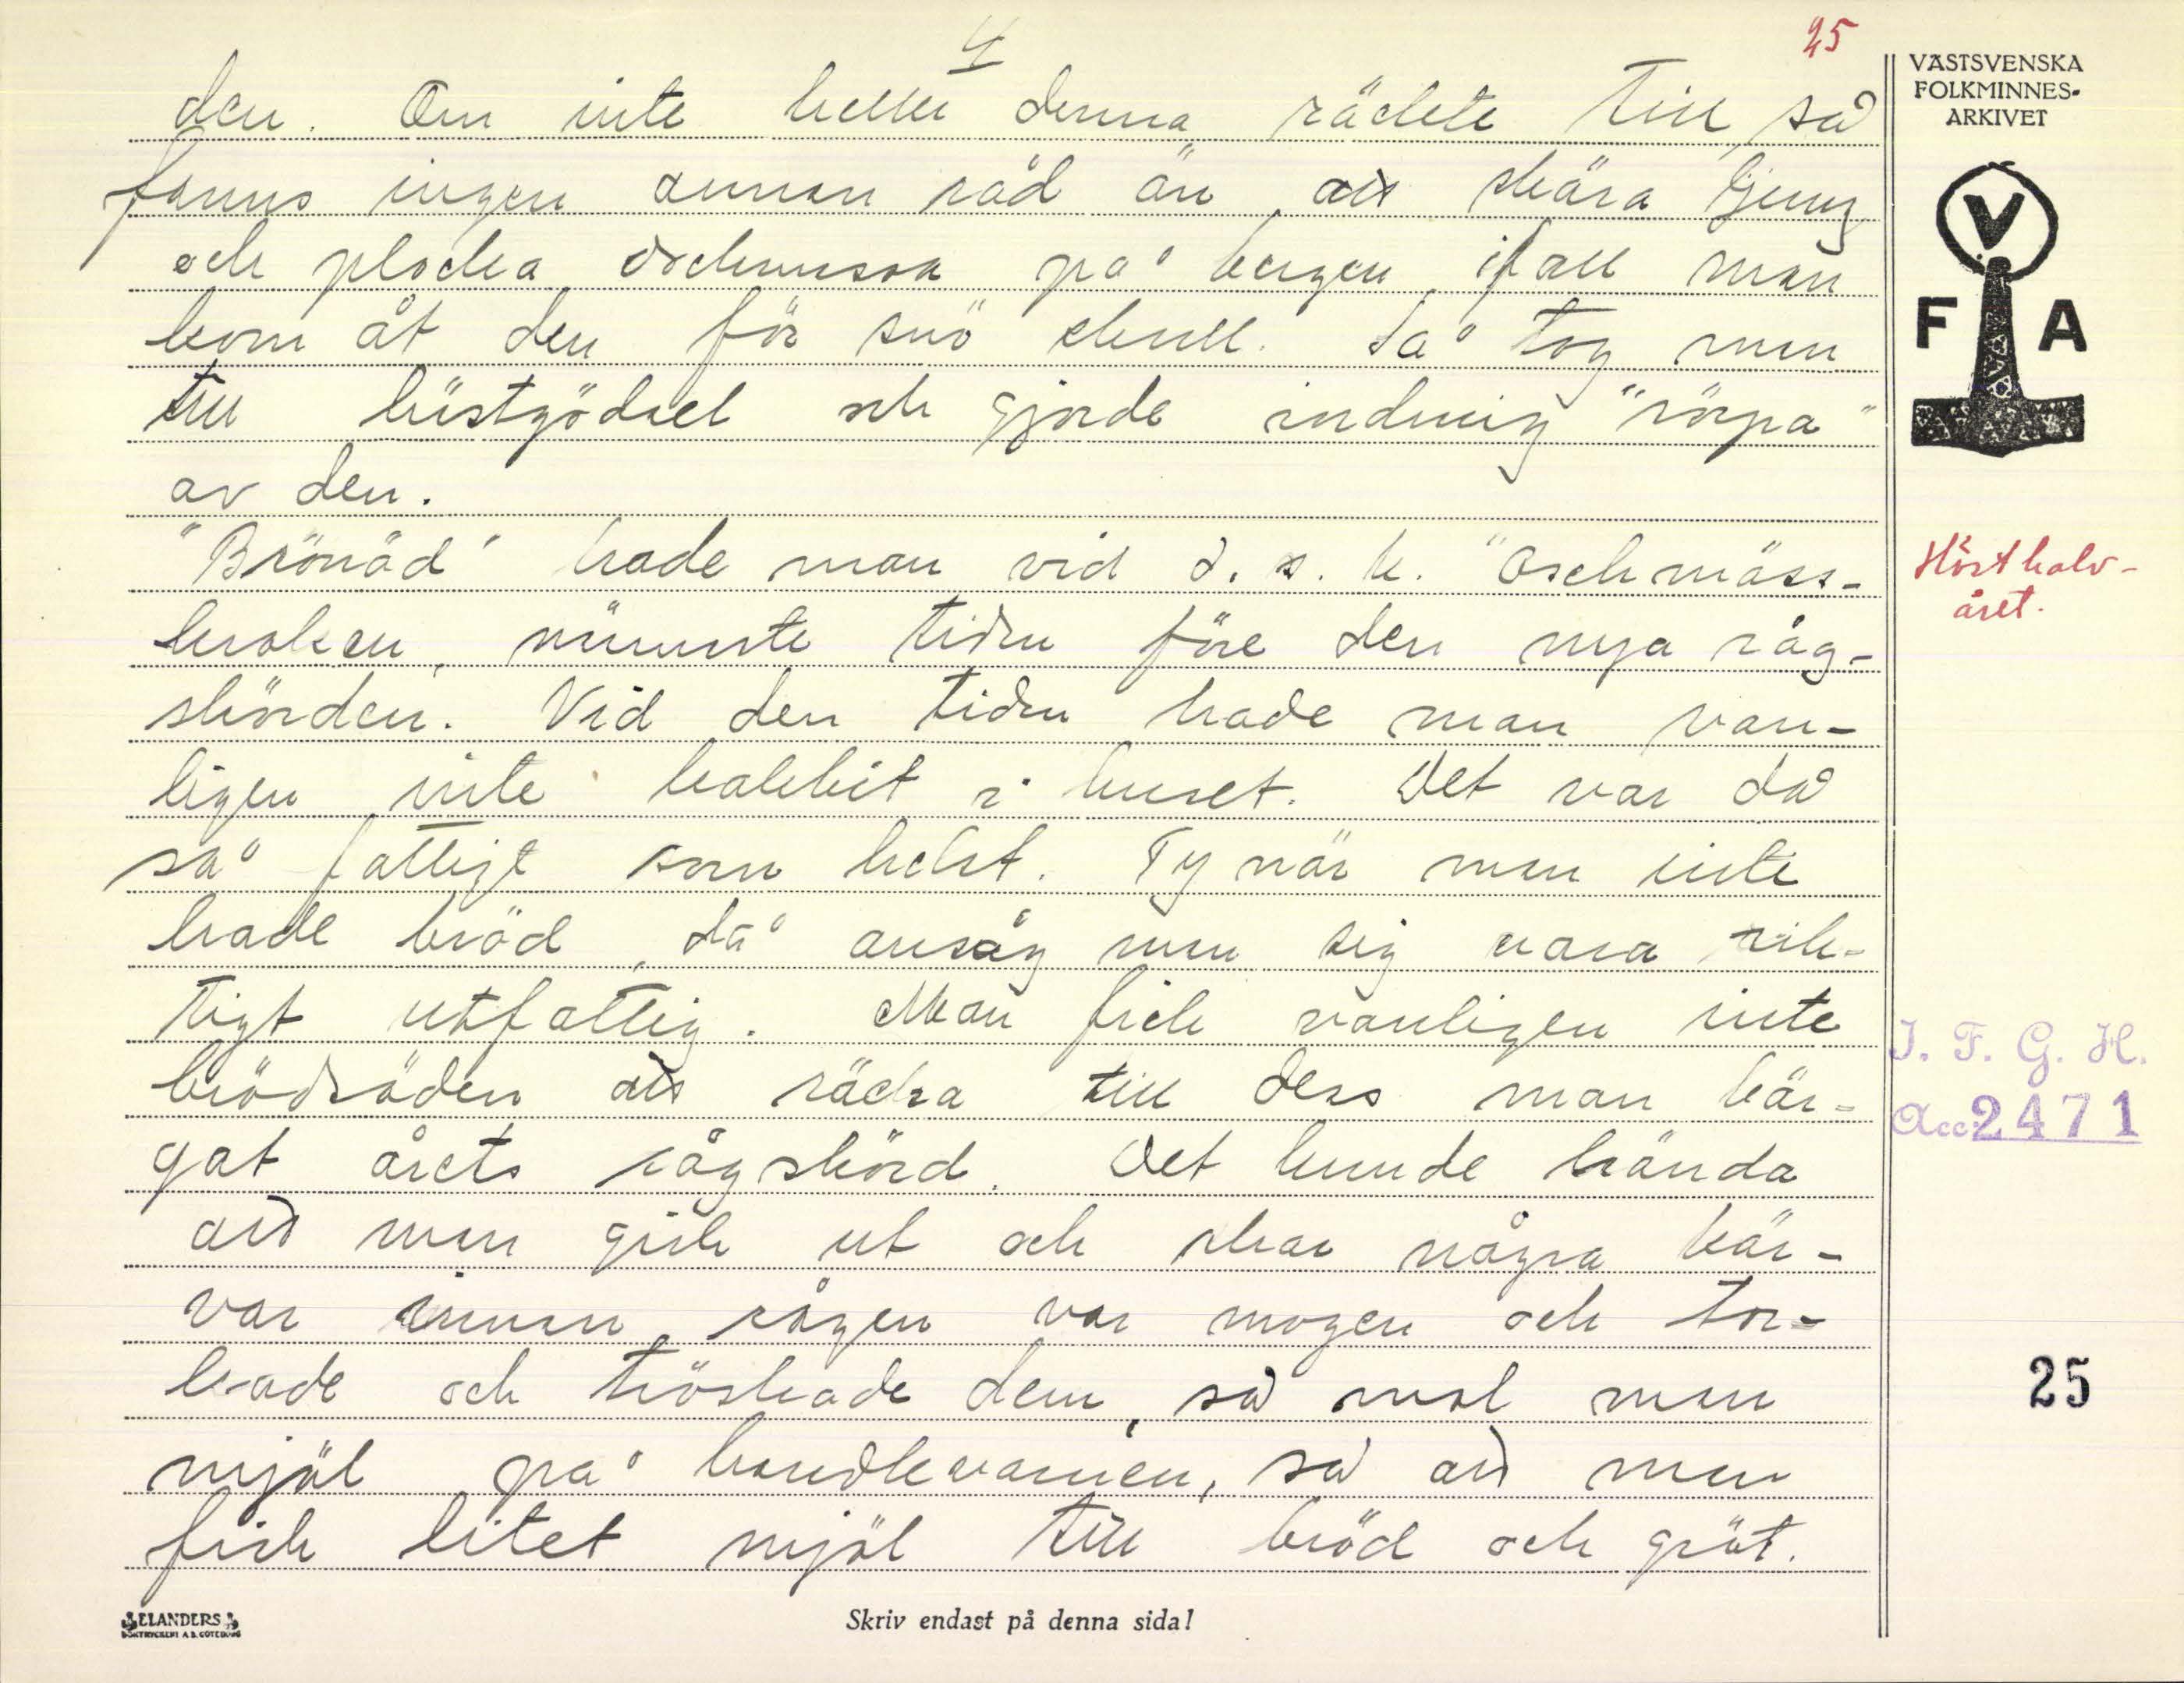 4
25
den. Om inte heller denna räckte till så
fanns ingen annan råd än att skära ljung
och plocka ockmosa på bergen ifall man
kom åt den för snö skull. Så tog man
till hästgödsel och gjorde indruig "sörpa"
av den.
"Brönöd" hade man vid d. s. k. "Ockmäss-
kroken, närmste tiden före den nya råg-
skörden. Vid den tiden hade man van-
ligen inte kakbit i huset. Det var då
så fattigt som helst. Ty när man inte
hade bröd, då ansåg man sig vara rik-
tigt utfattig. Man fick vanligen inte
brödsäden att räcka till dess man bär-
gat årets rågskörd. Det kunde hända
att man gick ut och skar några kär-
var innan rågen var mogen och tor-
kade och tröskade dem, så mol man
mjöl på handkvarnen, så att man
fick litet mjöl till bröd och gröt.
VÄSTSVENSKA
FOLKMINNES-
ARKIVET
V
F A
Hösthalv-
året.
I. F. G. H.
Acc. 2471
25
ELANDERS
BOKTRYCKERI A.B. GÖTEBORG
Skriv endast på denna sida!